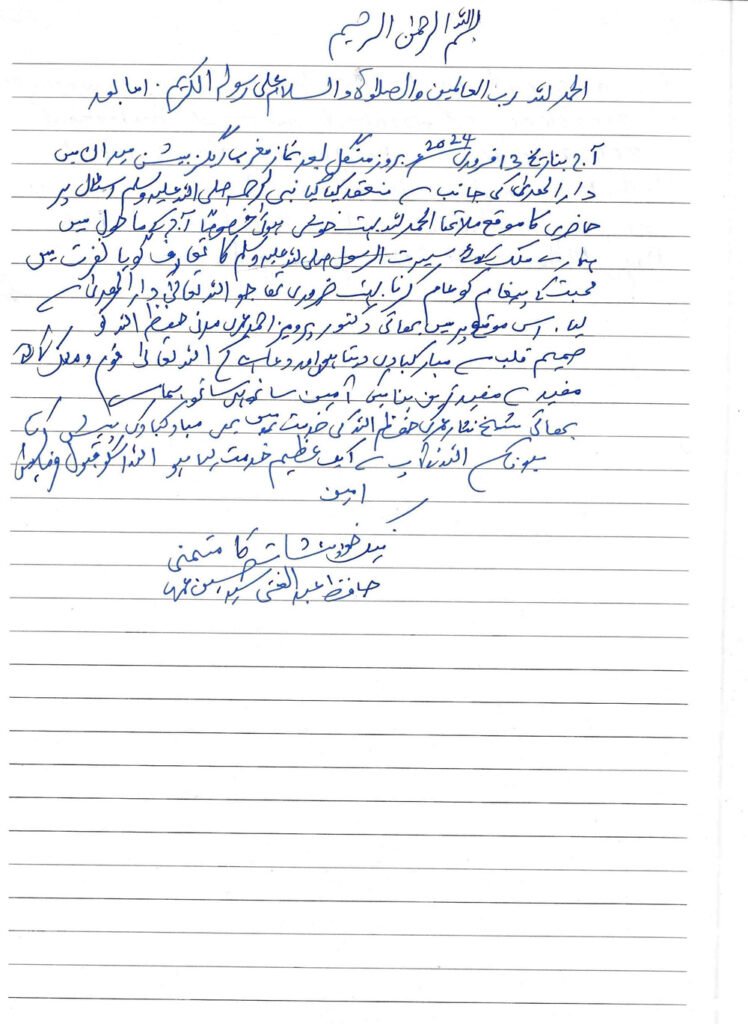 بسم اللہ الرحمٰن الرحیم
الحمد للہ رب العالمین والصلوٰۃ والسلام علی رسولہ الکریم۔ اما بعد
آج بتاریخ 13 فروری 2024ء بروز منگل بعد نماز مغرب میدان میں
دار الھدیٰ کی جانب سے منعقد کیا گیا نبی رحمت صلی اللہ علیہ وسلم اسٹال پر
حاضری کا موقع ملا تھا الحمد للہ بہت خوشی ہوئی خصوصًا آج کے ماحول میں
ہمارے ملک کیلئے سیرت الرسول صلی اللہ علیہ وسلم کا تعارف گویا نفرت میں
محبت کے پیغام کو عام کرنا بہت ضروری تھا جو اللہ تعالیٰ دار الھدیٰ سے
لیا۔ اس موقع پر میں بھائی دکتور پرویز احمد مدنی حفظہ اللہ کو
صمیم قلب سے مبارکبادی دیتا ہوں اور دعا ہے کہ اللہ تعالیٰ قوم و ملک کیلئے
مفید سے مفید ترین بنائیں آمین ساتھ ہی ساتھ ہمارے
بھائی شیخ حفظہ اللہ کی خدمت میں بھی مبارکبادی پیش کرتا
ہوں کہ اللہ نے آپ سے ایک عظیم خدمت لیا ہے اللہ اسکو قبول فرمائیں
آمین
نیک خواہشات کا متمنی
حافظ عبد الغنی سید حسین